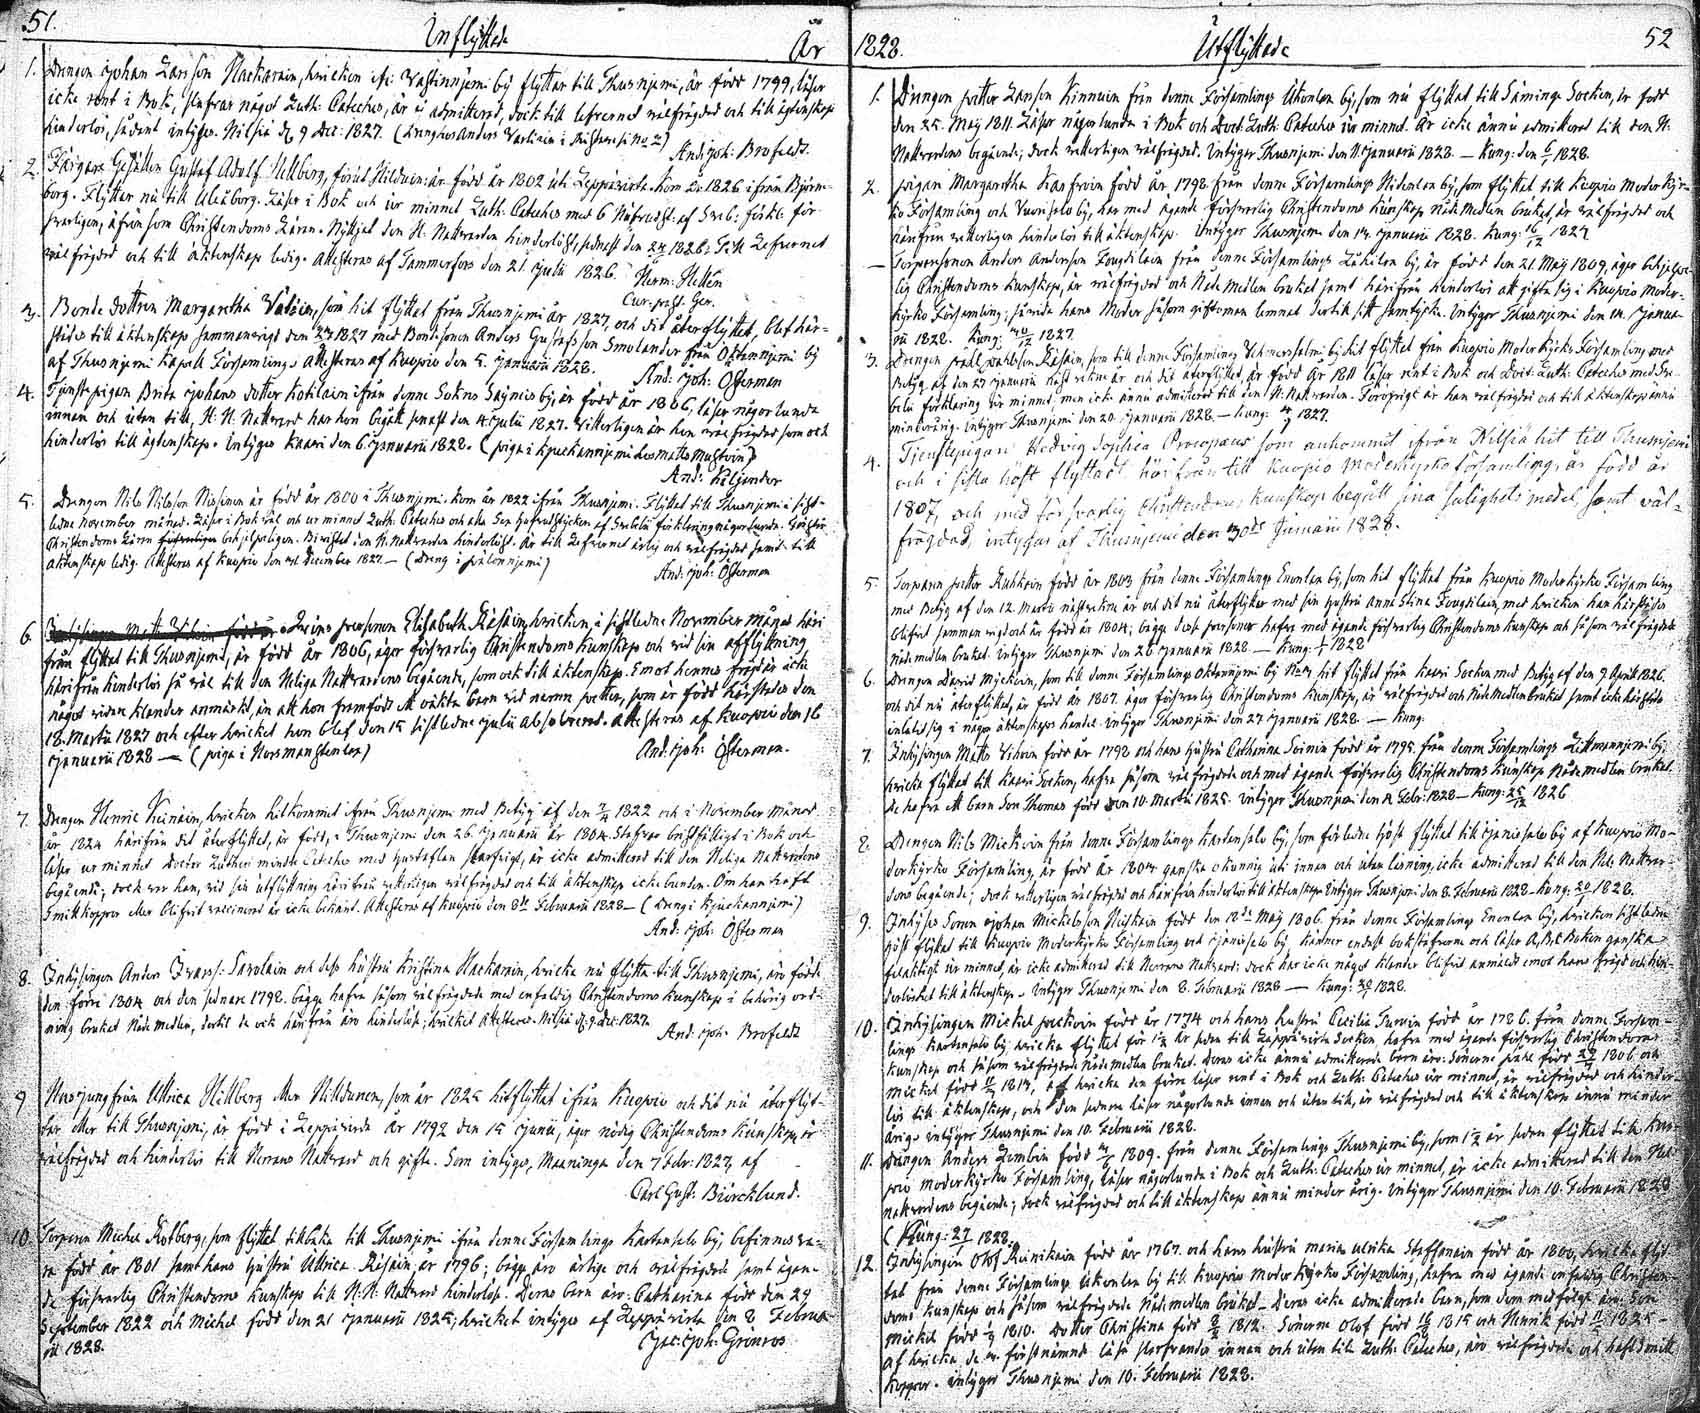 51.
Inflyttade
År
1. Drengen Johan Larsson Hackarain, hvilken ifr: Vastinnjemi by flyttar till Thusnjemi, är född 1799, läser
icke rent i Bok, stafvar något Luth: Cateches, är ei admitterad, dock till lefvernet välfrägdad och till ägtenskap
hinderlös, sådant intygas. Nilsiä d. 9 Dec: 1827. (Dreng hos Anders
And: Joh: Brofeldt.
2. Färgare Gesällen Gustaf Adolf Hellberg, förut Hilduin: är född år 1802 uti Leppävirta. Kom år 1826 ifrån Björne-
borg. Flyttar nu till Uleåborg. Läser i Bok och ur minnet Luth: Cateches med 6 af Sveb: förkl: för-
svarligen, äfven som Christendoms Läran. Nyttjat den H. Nattvarden hinderlöst, sednast den 1826. Till Lefvernet
välfrägdad och till äktenskap ledig. Attesteras af Tammerfors den 21. Julii 1826.
Herm: Hellén
Cur: past: Ger.
3. Bonde dottren Margaretha som hit flyttat från Thusnjemi år 1827, och dit återflyttat, blef här-
städes till äktenskap sammanvigd den 1827 med Bondesonen Anders Gustafsson Smolander från Oktennjemi by
af Thusnjemi Kapell Församling. Attesteras af Kuopio den 5. Januarii 1828.
And: Joh: Österman
4. Tjenstepigan Brita Johans dotter Kokkain ifrån denne Sokns by, är född år 1806, läser någorlunda
innan och utan till, H. H. Nattvard har hon begått senast den 4. Julii 1827. Vitterligen är hon välfrägdad som ock
hinderlös till ägtenskap. Intygas Kaavi den 6. Januarii 1828.
And: Kiljander
5. Drengen Nils Nilsson Nissinen är född år 1800 i Thusnjemi. Kom år 1822 ifrån Thusnjemi. Flyttat till Thusnjemi i sist-
ledne November månad. Läser i Bok väl och ur minnet Luth: Cateches och alla Sex Hufvudstycken af Svebelii förklaring någorlunda.
Christendoms Läran och Bivistat den H. Nattvarden hinderlöst. Är till Lefvernet ärlig och välfrägdad samt till
äktenskap ledig. Attesteras af Kuopio den December 1827. — (Dreng i Pelonnjemi)
And: Joh: Österman
6. Qvins personen Elisabeth Räsäin, hvilken, i sistledne November månad häri
från flyttat till Thusnjemi, är född år 1806, äger försvarlig Christendoms Kunskap och vid sin afflyttning
härifrån hinderlös så väl till den Heliga Nattvardens begående, som ock till äktenskap. Emot hennes frägd är icke
något vidare klander anmärkt, än att hon framfödt ett oäkta barn vid namn Petter, som är född härstädes den
18. Martii 1827 och efter hvilket hon blef den 15 sistledne Julii absolverad. Attesteras af Kuopio den 16
Januarii 1828 — (piga i Norsmanslenlax)
And: Joh: Österman.
7. Drengen Henric Keinäin, hvilken hitkommit ifrån Thusnjemi med Betyg af den 1822 och i November månad
år 1824 härifrån dit återflyttat, är född i Thusnjemi den 26. Januarii år 1804. Stafvar bristfälligt i Bok och
läser ur minnet Doctor Lutheri mindre Cateches med Hustaflan är icke admitterad till den Heliga Nattvardens
begående; dock var han, vid sin utflyttning härifrån vitterligen välfrägdad och till äktenskap icke bunden. Om han haft
Smittkoppor eller blifvit vaccinerad är icke bekant. Attesteras af Kuopio den 8de Februarii 1828 — (dreng i Kjuckannjemi)
And: Joh: Österman
8. Inhysingen Anders Savolain och dess hustru Kristina Hackarain, hvilka nu flytta till Thusnjemi, äro födde
den förra 1804 och den sednare 1798. begge hafva såsom välfrägdade med enfaldig Christendoms kunskap i behörig ord-
ning brukat Nådemedlen, dertil de ock härifrån äro hinderlöse; hvilket attesteras. Nilsiä d. 9. dec: 1827.
And: Joh: Brofeldt
9. Husjungfrun Ulrica Hillberg eller Hilldunen, som år 1825 hitflyttat ifrån Kuopio och dit nu återflyt-
tar eller till Thusnjemi, är född i Leppävirda år 1792 den 15 Junii, äger nödig Christendoms Kunskap, är
välfrägdad och hinderlös till Herrans Nattvard och gifte. Som intygas, Maaninga den 7 Febr: 1827, af
Carl Gust: Biörcklund.
10. Torparen Michel Kotberg, som flyttat tillbaka till Thusnjemi ifrån denne Församlings Kartansalo by, befinnes va-
ra född år 1801 samt hans Hustru Ullrica Räsäin, år 1796; begge äro ärlige och välfrägdade samt ägan-
de försvarlig Christendoms kunskap till H. H. Nattvard hinderlöse. Deras barn äro: Catharina född den 29
September 1822 och Michel född den 21 Januarii 1825; hvilket intygas af Leppävirta den 8 Februa-
rii 1828.
Jac: Joh: Grönroos
1828.
Utflyttade
52
1. Drengen Petter Larsson Kinnuin från denne Församlings Ukonlax by, som nu flyttat till Säminge Socken, är född
den 25. Maij 1811. Läser någorlunda i Bok och Doct: Luth: Cateches ur minnet. Är icke ännu admitterad till den H:
Nattvardens begående; dock vitterligen välfrägdad. Intygar Thusnjemi den 11. Januarii 1828. — Kung: den 6/1 1828.
2. Pigan Margaretha Karfvoin född år 1798. från denne Församlings Hidenlax by, som flyttat till Kuopio Moder Kyr-
ko Församling och Vuorisalo by, har med ägande försvarlig Christendoms kunskap nåde medlen brukat, är välfrägdad och
härifrån vitterligen hinderlös till äktenskap. Intygar Thusnjemi den 14. Januarii 1828. Kung: 16/12 1827
— Torparesonen Anders Andersson Fougdilain från denne Församlings by, är född den 21. Maij 1809, äger
lig Christendoms kunskap, är välfrägdad och Nåde Medlen brukat samt härifrån hinderlös att gifta sig i Kuopio Moder-
kyrko Församling; såvida hans Moder såsom giftoman lemnat dertil sitt samtycke. Intygar Thusnjemi den 14. Janua-
rii 1828. Kung: 30/12 1827.
3. Drengen Pahl Pahlsson Räsäin, som till denne Församlings Vehmersalmi by hit flyttat från Kuopio Moder Kyrko Församling med
Betyg af den 27 Januarii näst vikne år och dit återflyttat, är född år 1811 läser rent i Bok och Doct: Luth: Cateches med Sve-
belii förklaring ur minnet men icke ännu admitterad till den H. Nattvarden. Föröfrigt är han välfrägdad och till äktenskap ännu
minderårig. Intygar Thusnjemi den 20. Januarii 1828. — Kung: 1827.
4. Tjenstepigan Hedvig Sophia Procopæus som ankommit ifrån Nilsiä hit till Thusnjemi
och i sista höst flyttadt härifrån till Kuopio moderkyrko församling, är född år
1807, och med försvarlig Christendoms kunskap begått sina salighets medel, samt väl-
frägdad, intygas af Thusnjemi den 30de Januarii 1828.
5. Torparen Petter Ruhkain född år 1803 från denne Församlings Enonlax by, som hit flyttat från Kuopio Moderkyrko Församling
med Betyg af den 12. Martii nästvikne år och dit nu återflyttar med sin Hustru Anna Stina Fougdilain, med hvilken han härstädes
blifvit sammanvigd och är född år 1804; begge dessa personer hafva med ägande försvarlig Christendoms kunskap och såsom välfrägdade
nådemedlen brukat. Intygar Thusnjemi den 26 Januarii 1828 — Kung: 1828
6. Drengen David Myckäin, som till denne Församlings Oktennjemi by hit flyttat från Kaavi Socken med Betyg af den 9. April 1826.
och dit nu återflyttat, är född år 1807. äger försvarlig Christendoms kunskap, är välfrägdad och Nåde Medlen brukat samt icke härstädes
inlåtit sig i något äktenskaps handel. Intygar Thusnjemi den 27 Januarii 1828. — Kung:
7. Inhysingen Matts Vihain född år 1792 och hans hustru Catharina Soinin född år 1795. från denne Församlings Littmannjemi by,
hvilka flyttat till Kaavi Socken, hafva såsom välfrägdade och med ägande försvarlig Christendoms kunskap Nåde medlen brukat.
De hafva ett barn Son Thomas född den 10. Martii 1825. Intygar Thusnjemi den Febr: 1828 — Kung: 25/12 1826
8. Drengen Nils Mickäin från denne Församlings Kartansalo by, som förledne höst flyttat till Jänissalo by af Kuopio Mo-
derkyrko Församling, är född år 1804 ganska okunnig uti innan och utan läsning, icke admitterad till den Hel. Nattvar-
dens begående; dock vitterligen välfrägdad och härifrån hinderlös till äktenskap. Intygar Thusnjemi den 8. Februarii 1828 — Kung: 20/1 1828.
9. Inhyses Sonen Johan Mickelsson Niskain född den 12de Maij 1806. från denne Församlings Enonlax by, hvilken sistledne
höst flyttat till Kuopio Moderkyrko Församling och Jänissalo by, känner endast bokstäfverne och läser A, B, C Boken ganska
felaktigt ur minnet, är icke admitterad till Herrans Nattvard; dock har icke något klander blifvit anmäldt emot hans frägd och hin-
derlöshet till äktenskap. Intygar Thusnjemi den 8. Februarii 1828 — Kung: 20/1 1828.
10. Inhysingen Mickel Pockoin född år 1774 och hans hustru Cecilia Turvin född år 1786. från denne Försam-
lings Kartansalo by, hvilka flyttat för 1½ år sedan till Leppävirta Socken, hafva med ägande försvarlig Christendoms
kunskap och såsom välfrägdade Nådemedlen brukat. Deras icke ännu admitterade barn äro: Sönerne Påhl född 1806 och
Mickel född 1814, af hvilka den förre läser rent i Bok och Luth: Cateches ur minnet, är välfrägdad och hinder-
lös till äktenskap, och den sednare läser någorlunda innan och utan till, är välfrägdad och till äktenskap ännu minder
årig. Intygar Thusnjemi den 10. Februarii 1828.
11. Drengen Anders Lembin född 1809. från denne Församlings Thusnjemi by, som 1½ år sedan flyttat till Kuo-
pio moderkyrko Församling, läser någorlunda i Bok och Luth: Cateches ur minnet, är icke admitterad till den Hel.
nattvardens begående; dock välfrägdad och till äktenskap ännu minder årig. Intygar Thusnjemi den 10. Februarii 1828
(Kung: 27/1 1828.
12. Inhysingen Olof Reinikain född år 1767. och hans hustru Maria Ulrika Steffanain född år 1800, hvilka flyt-
tat från denne Församlings Ukonlax by till Kuopio Moder Kyrko Församling, hafva med ägande enfaldig Christen-
doms kunskap och såsom välfrägdade Nåde medlen brukat — Deras icke admitterade barn, som dem medfölgt äro: Son
Mickel född 1810. Dotter Christina född 1812. Sönerne Olof född 1815 och Henrik född 1825 —
af hvilka de förstnämnde läsa innan och utan till Luth: Cateches, äro välfrägdade och haft Smitt
koppor. Intygar Thusnjemi den 10. Februarii 1828.